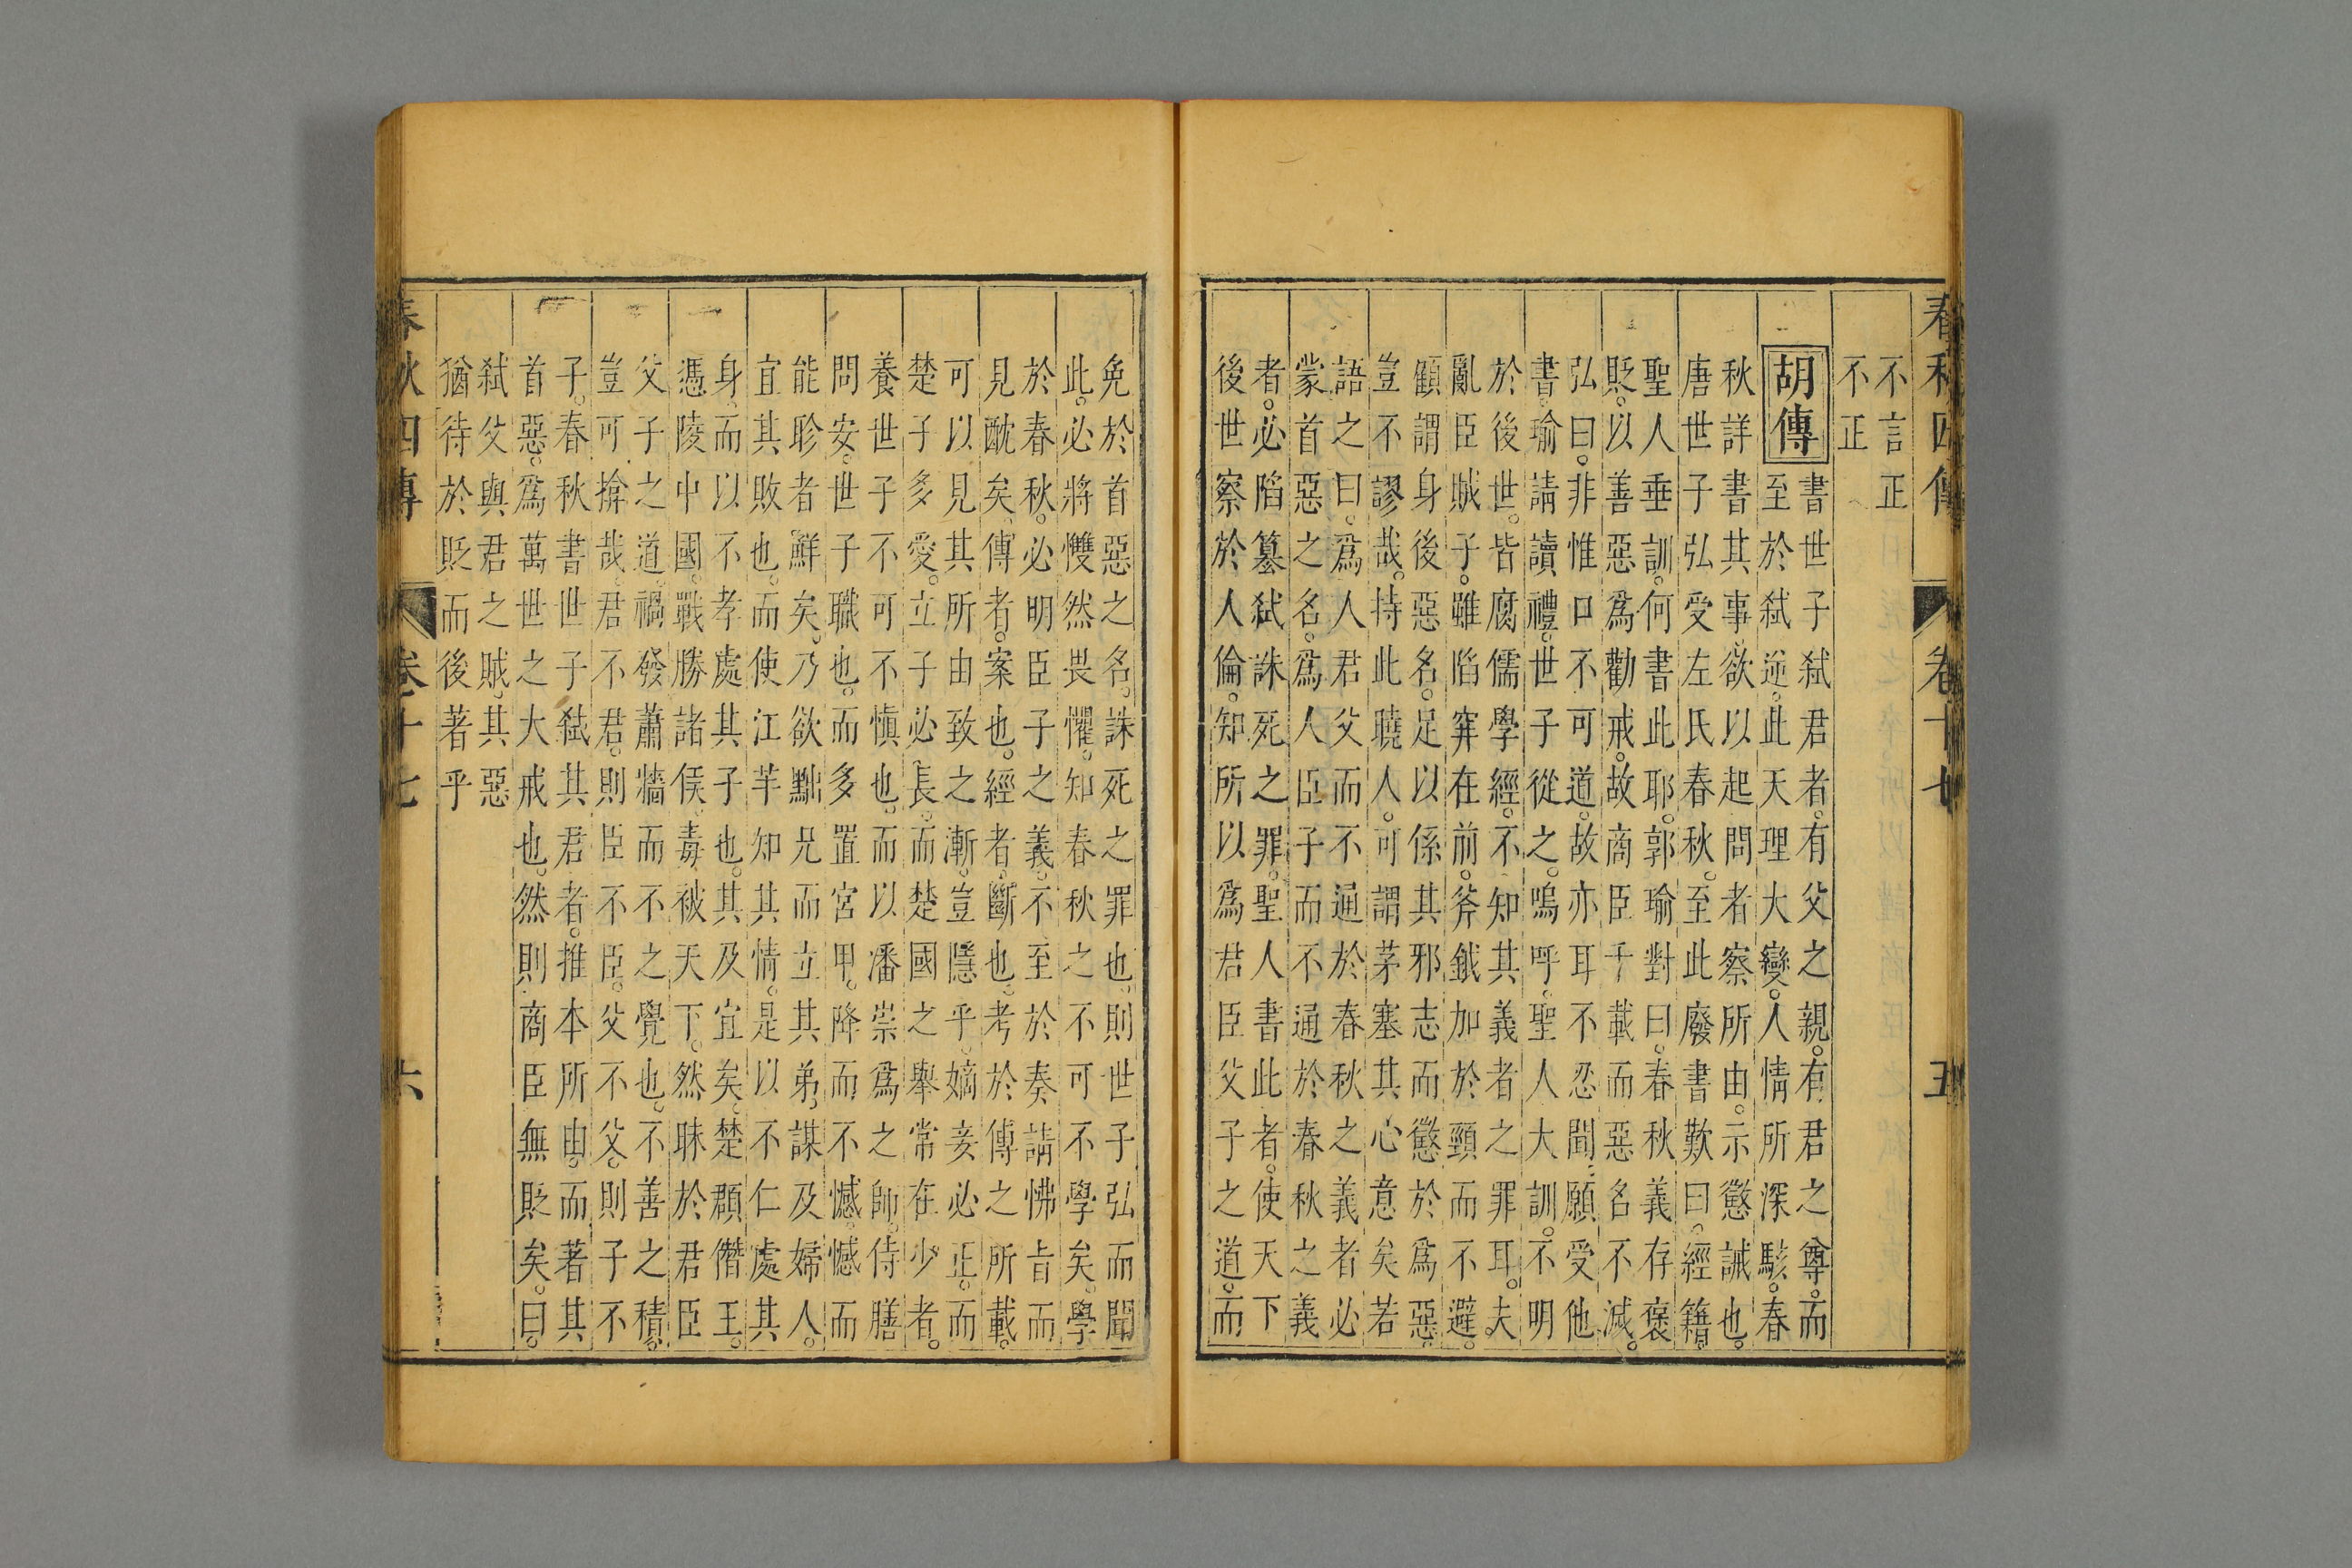 春秋四傳 卷十七 五
不言正
不正
胡傳
書世子弑君者。有父之親。有君之尊。而
至於弑逆。此天理大變。人情所深駭。春
秋詳書其事。欲以起問者。察所由。示懲誡也。
唐世子弘受左氏春秋。至此廢書歎曰。經籍。
聖人垂訓。何書此耶。郭瑜對曰。春秋義存褒
貶。以善惡爲勸戒。故商臣千載而惡名不滅。
弘曰。非惟口不可道。故亦耳不忍聞。願受他
書。瑜請讀禮。世子從之。嗚呼。聖人大訓。不明
於後世。皆腐儒學經。不知其義者之罪耳。夫
亂臣賊子。雖陷穽在前。斧鉞加於頸而不避。
顧謂身後惡名。足以係其邪志而懲於爲惡。
豈不謬哉。持此曉人。可謂茅塞其心意矣若
語之曰。爲人君父而不通於春秋之義者必
蒙首惡之名。爲人臣子而不通於春秋之義
者。必陷篡弑誅死之罪。聖人書此者。使天下
後世察於人倫。知所以爲君臣父子之道。而
免於首惡之名。誅死之罪也。則世子弘而聞
此。必將戄然畏懼。知春秋之不可不學矣。學
於春秋。必明臣子之義。不至於奏請怫旨而
見酖矣。傳者。案也。經者。斷也。考於傳之所載。
可以見其所由致之漸。豈隱乎。嫡妾必正。而
楚子多愛。立子必長。而楚國之舉常在少者。
養世子不可不慎也。而以潘崇爲之師。侍膳
問安。世子職也。而多置宮甲。降而不憾。憾而
能眕者。鮮矣。乃欲黜兄而立其弟。謀及婦人。
宜其敗也。而使江芊知其情。是以不仁處其
身。而以不孝處其子也。其及宜矣。楚頵僭王。
憑陵中國。戰勝諸侯。毒被天下。然昧於君臣
父子之道。禍發蕭牆而不之覺也。不善之積。
豈可揜哉。君不君。則臣不臣。父不父。則子不
子。春秋書世子弑其君者。推本所由。而著其
首惡。爲萬世之大戒也。然則商臣無貶矣。曰。
弑父與君之賊。其惡
猶待於貶而後著乎
春秋四傳 卷十七 六